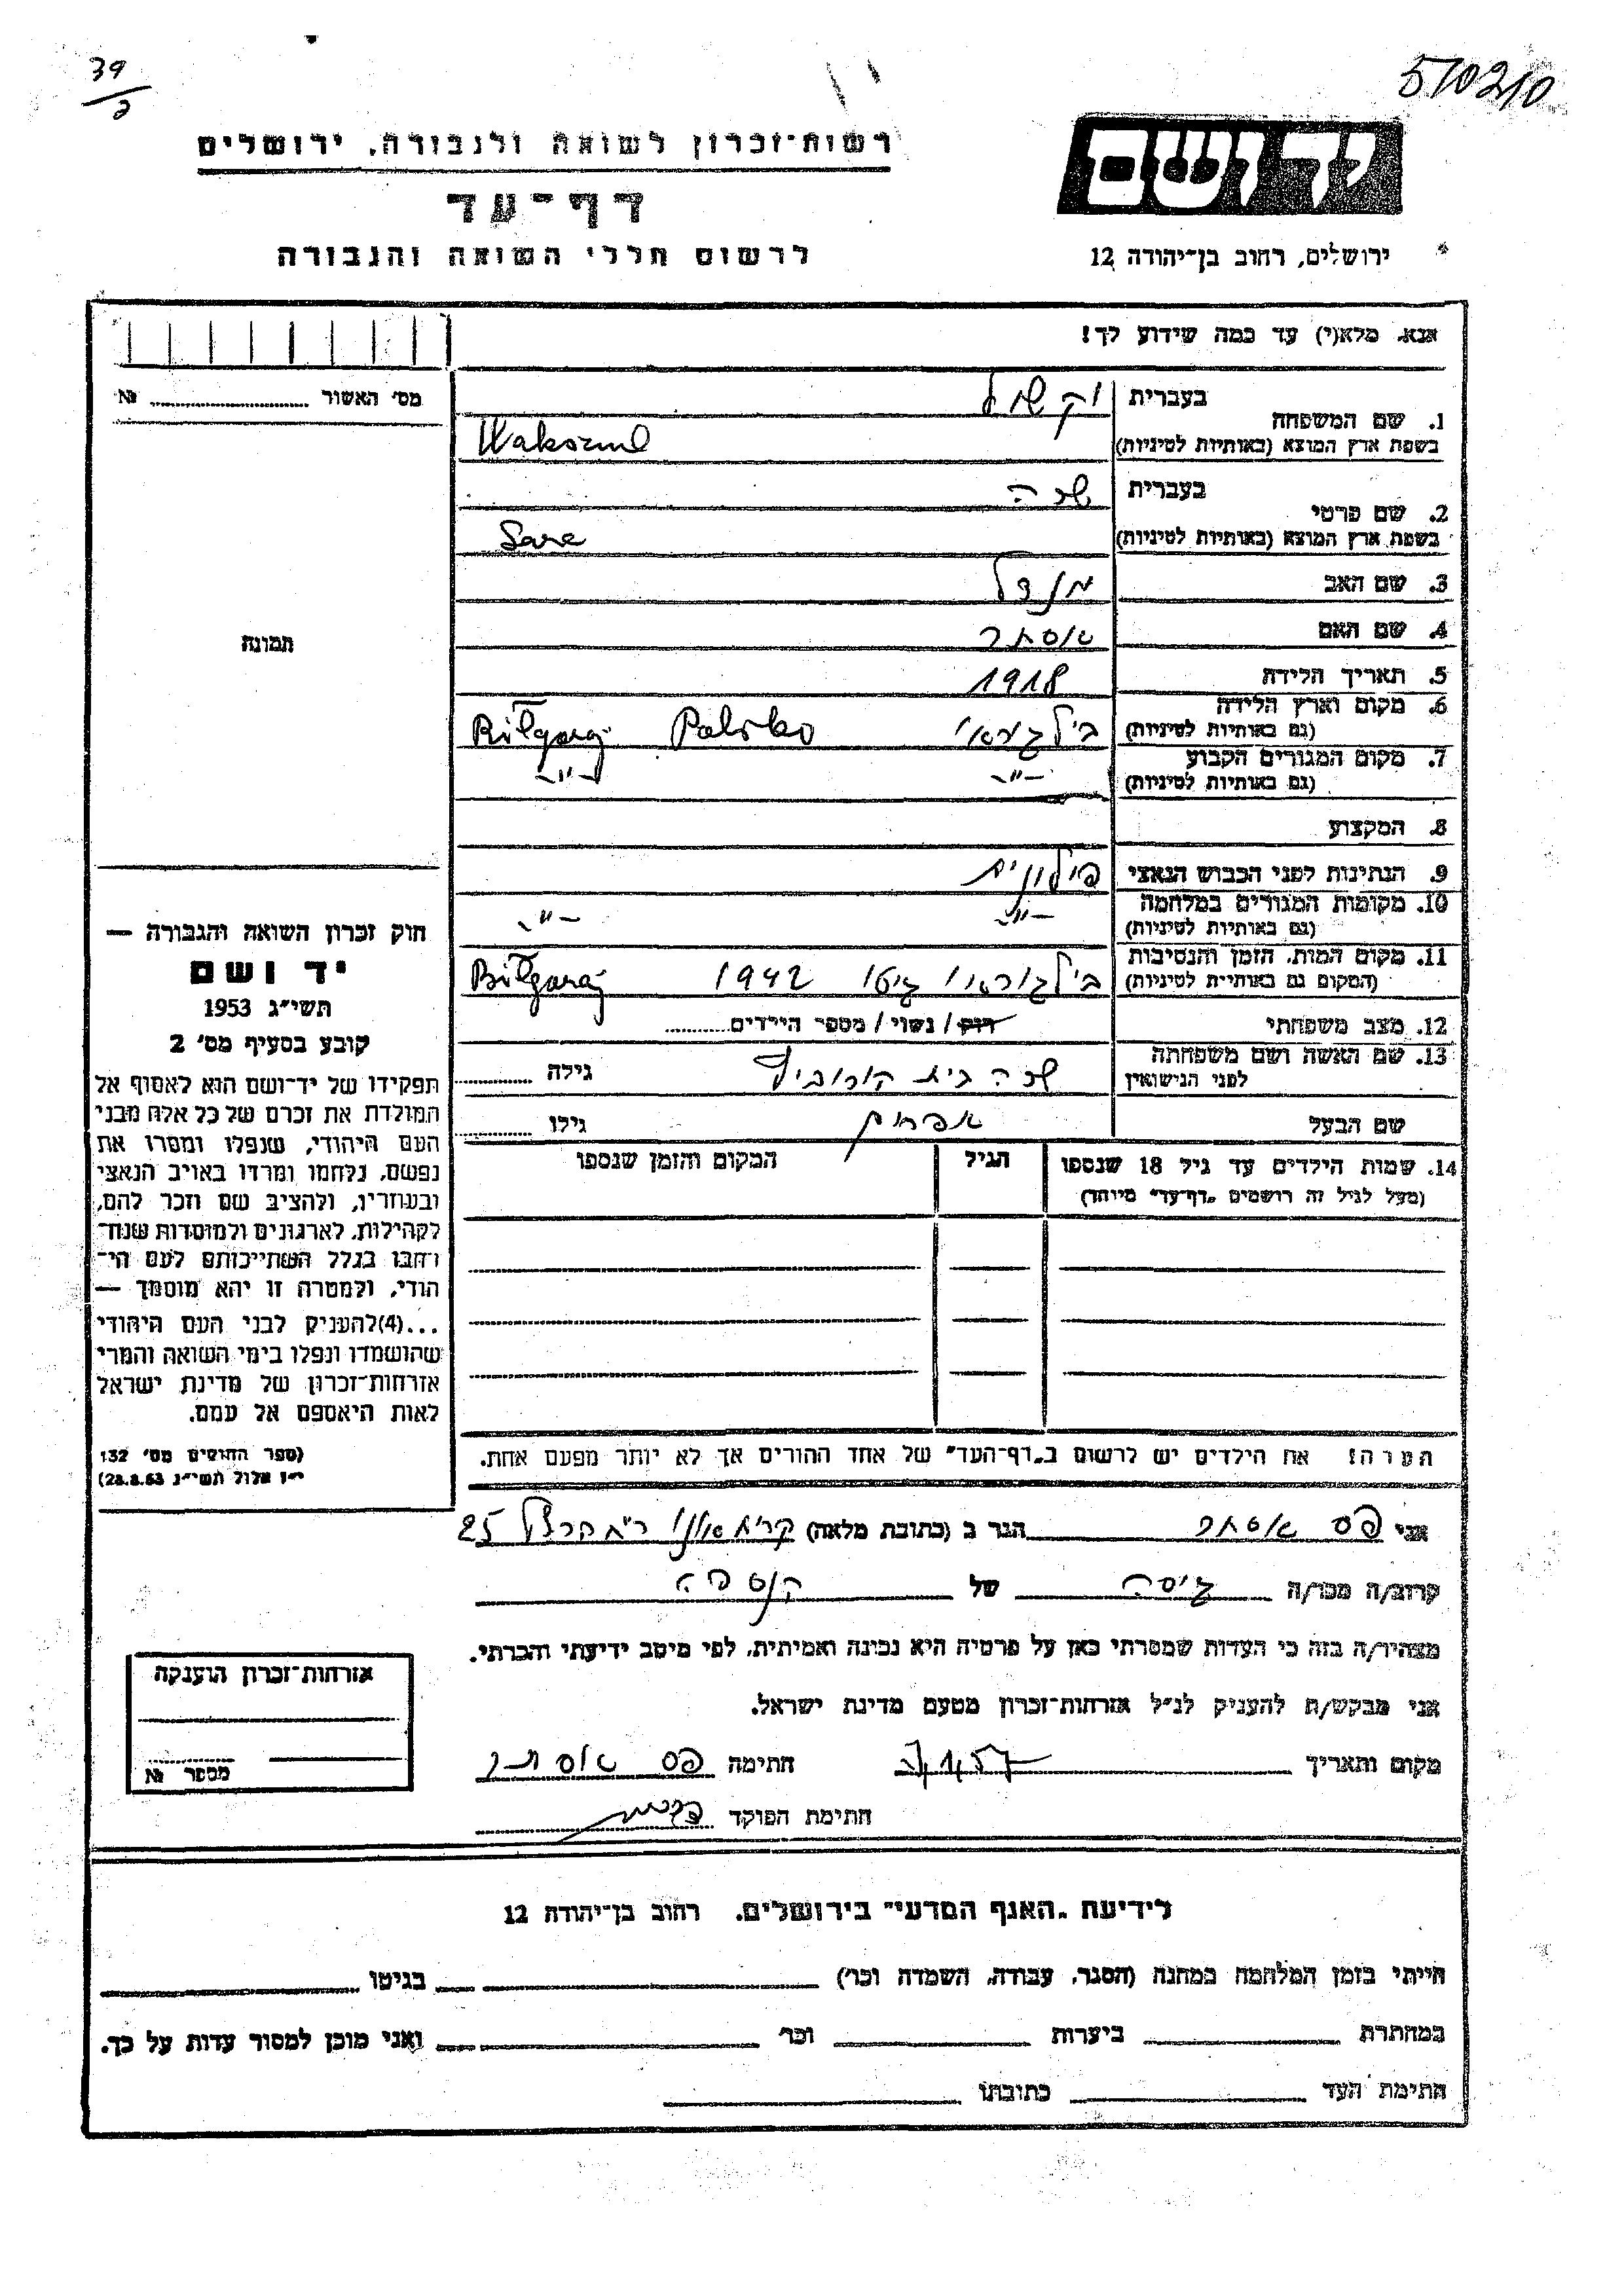 39
2
510210
רשות־זכרון לשואה ולגבורה, ירושלים
יד ושם
דף־עד
לרשום חללי השואה והגבורה
ירושלים, רחוב בן־יהודה 12
אנא, מלא(י) עד כמה שידוע לך!
מס' האשור № 
1. שם המשפחה
בעברית וקשול
בשפת ארץ המוצא (באותיות לטיניות) Wakszul
2. שם פרטי
בעברית שרה
בשפת ארץ המוצא (באותיות לטיניות) Sara
3. שם האב מנדל
תמונה
4. שם האם אסתר
5. תאריך הלידה 1918
6. מקום וארץ הלידה (גם באותיות לטיניות) בילגוראי Polsko Biłgoraj
7. מקום המגורים הקבוע (גם באותיות לטיניות) -"- -"-
8. המקצוע
9. הנתינות לפני הכבוש הנאצי פולונית
10. מקומות המגורים במלחמה (גם באותיות לטיניות) -"- -"-
11. מקום המות, הזמן והנסיבות (המקום גם באותיות לטיניות) בילגוראי גיטו 1942 Biłgoraj
12. מצב משפחתי רוק / נשוי / מספר הילדים
13. שם האשה ושם משפחתה לפני הנישואין שרה בית הורוביץ גילה
שם הבעל אפרים גילו
14. שמות הילדים עד גיל 18 שנספו
(מעל לגיל זה רושמים „דף־עד" מיוחד)
הגיל
המקום והזמן שנספו
חוק זכרון השואה והגבורה —
יד ושם
תשי"ג 1953
קובע בסעיף מס' 2
תפקידו של יד־ושם הוא לאסוף אל
המולדת את זכרם של כל אלה מבני
העם היהודי, שנפלו ומסרו את
נפשם, נלחמו ומרדו באויב הנאצי
ובעוזריו, ולהציב שם וזכר להם,
לקהילות, לארגונים ולמוסדות שנח־
רבו בגלל השתייכותם לעם הי־
הודי, ולמטרה זו יהא מוסמך —
...(4)להעניק לבני העם היהודי
שהושמדו ונפלו בימי השואה והמרי
אזרחות־זכרון של מדינת ישראל
לאות היאספם אל עמם.
(ספר החוקים מס' 132
י"ז אלול תשי"ג 28.8.53)
הערה: את הילדים יש לרשום ב„דף־העד" של אחד ההורים אך לא יותר מפעם אחת.
אני פס אסתר הגר ב (כתובת מלאה) קרית אונו רח הרצל 25
קרוב/ה מכר/ה גיסה של הנספה
מצהיר/ה בזה כי העדות שמסרתי כאן על פרטיה היא נכונה ואמיתית, לפי מיטב ידיעתי והכרתי.
אני מבקש/ת להעניק לנ"ל אזרחות־זכרון מטעם מדינת ישראל.
מקום ותאריך חתימה פס אסתר
חתימת הפוקד
אזרחות־זכרון הוענקה
מספר №
לידיעת „האגף המדעי" בירושלים, רחוב בן־יהודה 12
הייתי בזמן המלחמה במחנה (הסגר, עבודה, השמדה וכו') בגיטו
במחתרת ביערות וכו' ואני מוכן למסור עדות על כך.
חתימת העד כתובתו